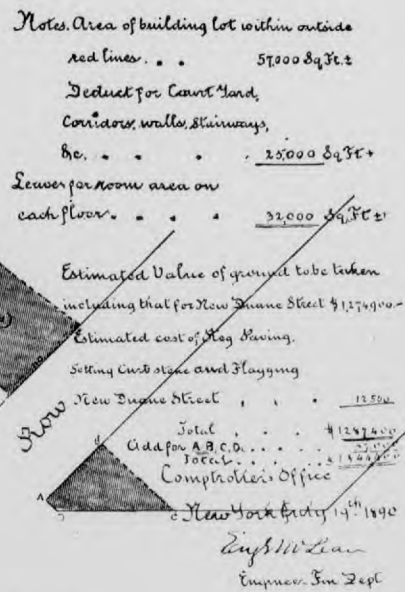 Notes. Area of building lot within outside
red lines. . . 57,000 Sq Ft. ±
Deduct for Court Yard,
Corridors, walls, Stairways,
&c. . . . . 25,000 Sq Ft +
Leaves for room area on
each floor . . . . 32,000 Sq Ft ±
Estimated Value of ground to be taken
including that for New Duane Street $1,274,900.-
Estimated cost of Reg Paving,
Setting Curb stone and Flagging
New Duane Street . . . 12 500
Total . . . $1287400
Add for A.B.C.D. . . . .
Total . . . .
Row
Comptroller's Office
New York 19th 1890
Eng S McLean
Engineer Fin Dept
A
B
C
D